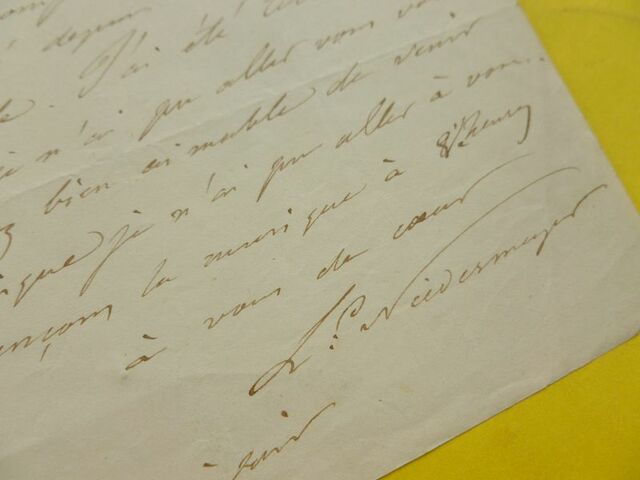 depuis
J'ai été
je n'ai pu aller vous vo
bien aimable de venir
que je n'ai pu aller à vou..
ençons la musique à 8 heures
à vous de cœur
L. Niedermeyer
soir